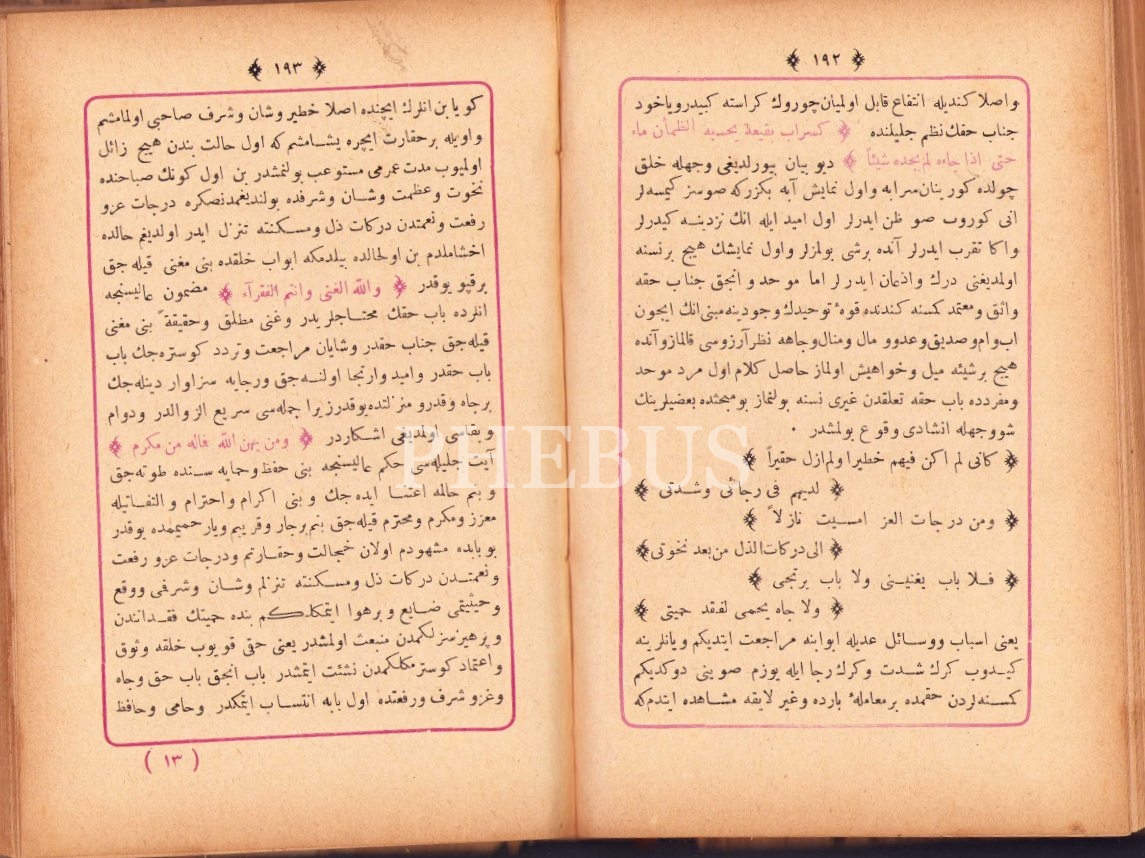 ١٩٢
واصلا كندیله انتفاع قابل اولمیان چوروك كراسته كبیدر ویاخود
جناب حقك نظم جلیلنده ﴿ كسراب بقیعة یحسبه الظمأن ماء
حتی اذا جاءه لم یجده شیئاً ﴾ دیو بیان بیورلدیغی وجهله خلق
چولده كورینان سرابه واول نمایش آبه بكزركه صوسز كیمسه لر
انی كوروب صو ظن ایدرلر اول امید ایله انك نزدینه كیدرلر
واكا تقرب ایدرلر آنده برشی بولمزلر واول نمایشك هیچ برنسنه
اولمدیغنی درك واذعان ایدرلر اما موحد وانجق جناب حقه
واثق ومعتمد كسنه كندنده قوهٔ توحیدك وجودینه مبنی انك ایچون
اب وام وصدیق وعدو ومال ومنال وجاهه نظر آرزوسی قالماز وآنده
هیچ برشیئه میل وخواهیش اولماز حاصل كلام اول مرد موحد
ومفردده باب حقه تعلقدن غیری نسنه بولنماز بومبحثده بعضیلرینك
شو وجهله انشادی وقوع بولمشدر ٠
﴿ كانی لم اكن فیهم خطیرا ولم ازل حقیراً ﴾
﴿ لدیهم فی رجائی وشدتی ﴾
﴿ ومن درجات العز امسیت نازلاً ﴾
﴿ الی دركات الذل من بعد نخوتی ﴾
﴿ فلا باب یغنینی ولا باب یرتجی ﴾
﴿ ولا جاه یحمی لفقد حمیتی ﴾
یعنی اسباب ووسائل عدیله ابوابنه مراجعت ایتدیكم ویانلرینه
كیدوب كرك شدت وكرك رجا ایله یوزم صوینی دوكدیكم
كمسنه لردن حقمده برمعاملهٔ بارده وغیر لایقه مشاهده ایتدم كه
١٩٣
كویا بن انلرك ایچنده اصلا خطیر وشان وشرف صاحبی اولمامشم
واویله بر حقارت ایچره یشامشم كه اول حالت بندن هیچ زائل
اولمیوب مدت عمرمی مستوعب بولنمشدر بن اول كونك صباحنده
نخوت وعظمت وشان وشرفده بولندیغمدنصكره درجات عزو
رفعت ونعمتدن دركات ذل ومسكنته تنزل ایدر اولدیغم حالده
اخشاملدم بن اولحالده بیلدمكه ابواب خلقده بنی مغنی قیله جق
برقپو یوقدر ﴿ والله الغنی وانتم الفقرآء ﴾ مضمون عالیسنجه
انلرده باب حقك محتاجلریدر وغنی مطلق وحقیقةً بنی مغنی
قیله جق جناب حقدر وشایان مراجعت وتردد كوستره جك باب
باب حقدر وامید وارتجا اولنه جق ورجایه سزاوار دینله جك
برجاه وقدرو منزلتده یوقدر زیرا جمله سی سریع الزوالدر ودوام
وبقاسی اولمدیغی اشكاردر ﴿ ومن یهن الله فماله من مكرم ﴾
آیت جلیله سی حكم عالیسنجه بنی حفظ وحمایه سنده طوته جق
وبنم حالمه اعتنا ایده جك وبنی اكرام واحترام والتفاتیله
معزز ومكرم ومحترم قیله جق بنم برجار وقریبم ویار حمیممده یوقدر
بوبابده مشهودم اولان خجالت وحقارتم ودرجات عزو رفعت
ونعمتدن دركات ذل ومسكنته تنزلم وشان وشرفمی ووقع
وحیثیتمی ضایع وبرهوا ایتمكلكم بنده حمیتك فقداندن
وپرهیزسزلكمدن منبعث اولمشدر یعنی حقی قویوب خلقه وثوق
واعتماد كوسترمكلكمدن نشئت ایتمشدر باب انجق باب حق وجاه
وعزو شرف ورفعتنده اول بابه انتساب ایتمكدر وحامی وحافظ
( ١٣ )
PHEBUS